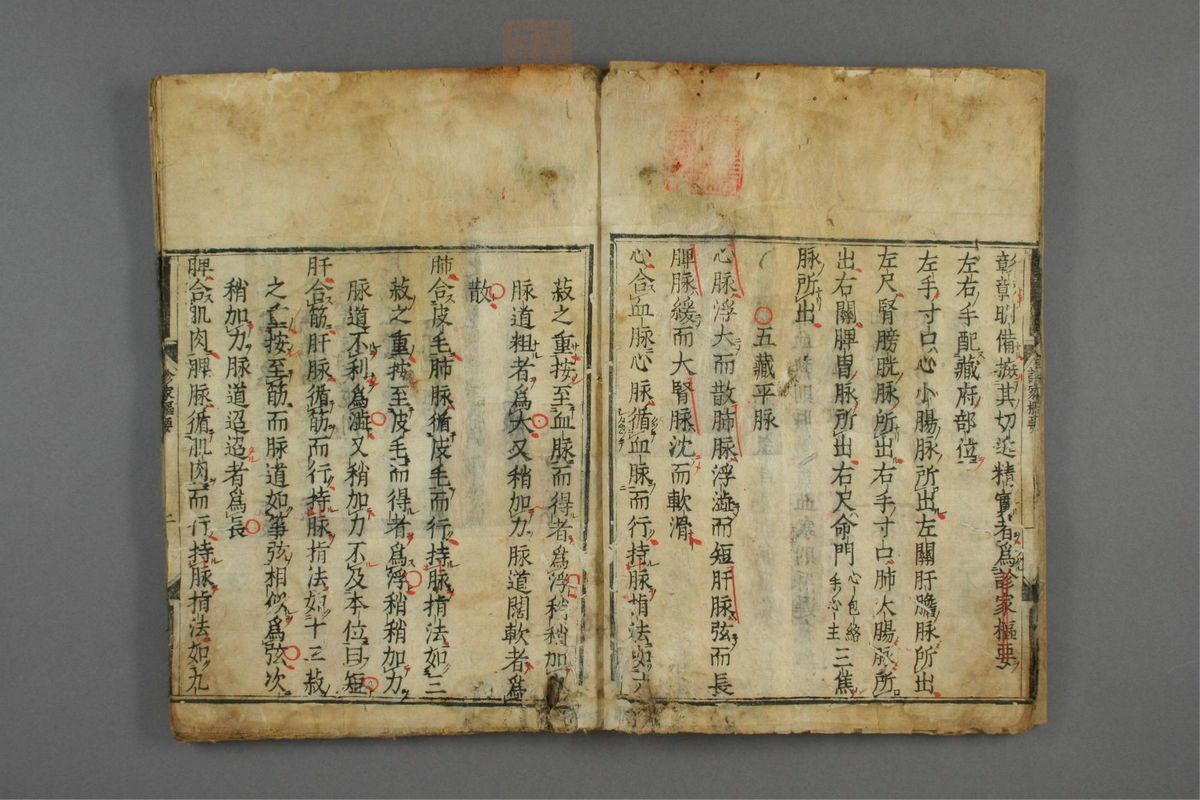 彰彰明備撮其切近精實者為診家樞要
左右手配藏府部位
左手寸口心小腸脉所出左關肝膽脉所出
左尺腎膀胱脉所出右手寸口肺大腸脉所
出右關脾胃脉所出右尺命門心包絡手心主三焦
脉所出
○五藏平脉
心脉浮大而散肺脉浮澁而短肝脉弦而長
脾脉緩而大腎脉沈而軟滑
心合血脉心脉循血脉而行持脉指法如六
菽之重按至血脉而得者為浮稍稍加
脉道粗者為大又稍加力脉道闊軟者為
散
肺合皮毛肺脉循皮毛而行持脉指法如三
菽之重按至皮毛而得者為浮稍稍加力
脉道不利為澁又稍加力不及本位曰短
肝合筋肝脉循筋而行持脉指法如十二菽
之重按至筋而脉道如箏弦相似為弦次
稍加力脉道迢迢者為長
脾合肌肉脾脉循肌肉而行持脉指法如九
診家樞要